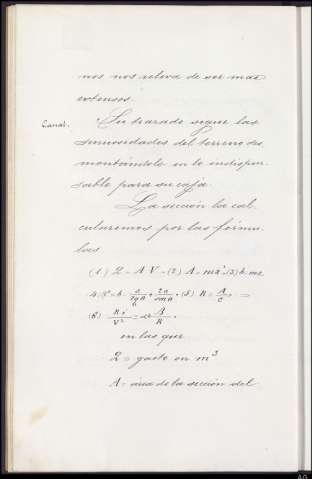 nos nos releva de ser mas
extensos.
Canal.
Su trazado sigue las
sinuosidades del terreno des
montándole en lo indispen
sable para su caja.
La sección la cal
cularemos por las fórmu
las
(1) Q = A V - (2) A = ma² (3) b = ma
(5) R = A/C
(6) R²/V² = α + β/R
en las que
Q = gasto en m³
A = área de la sección del